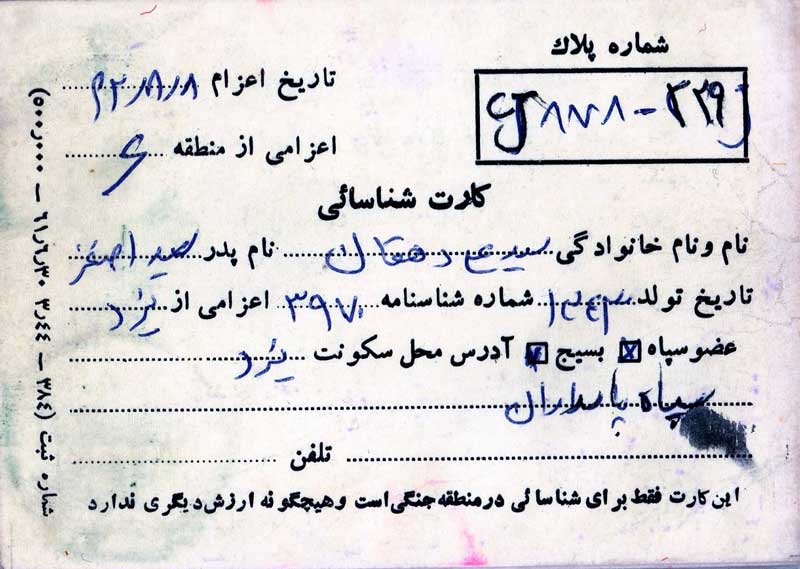 شماره پلاك
تاریخ اعزام ۶۲/۸/۸
۳۳۹ - ۸۷۸
اعزامی از منطقه
کارت شناسائی
نام ونام خانوادگی دهقان نام پدر سید اصغر
تاریخ تولد ۱۳۴۳ شماره شناسنامه ۳۹۷ اعزامی از یزد
عضوسپاه بسیج آدرس محل سکونت یزد
سپاه پاسداران
تلفن
این کارت فقط برای شناسائی در منطقه جنگی است وهیچگونه ارزش دیگری ندارد
شماره ثبت (۳۸٤ – ۳ر٤٤ ۶۱ر۶ر۳۰ – ۵۰۰ر۰۰۰)